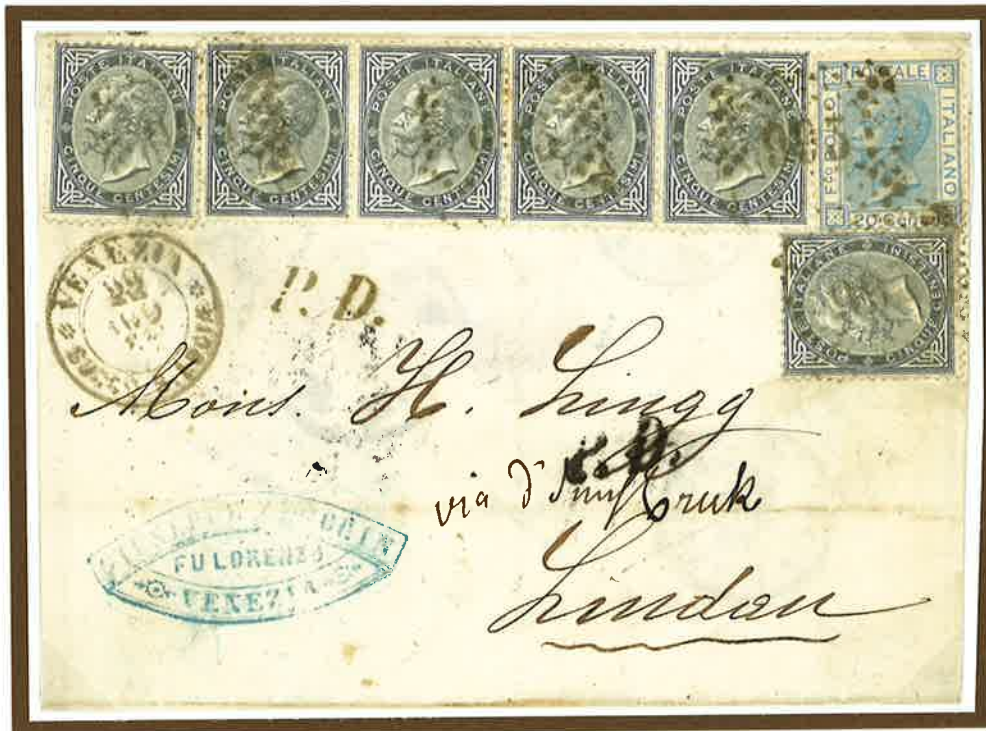 POSTE ITALIANE CINQUE CENTESIMI
POSTE ITALIANE CINQUE CENTESIMI
POSTE ITALIANE CINQUE CENTESIMI
POSTE ITALIANE CINQUE CENTESIMI
POSTE ITALIANE CINQUE CENTESIMI
F.CO BOLLO POSTALE ITALIANO
20 Cent
POSTE ITALIANE CINQUE CENTESIMI
VENEZIA
22
P. D.
Mons. H. Lingg
P.D.
via d'
Lindau
FU LORENZO
VENEZIA